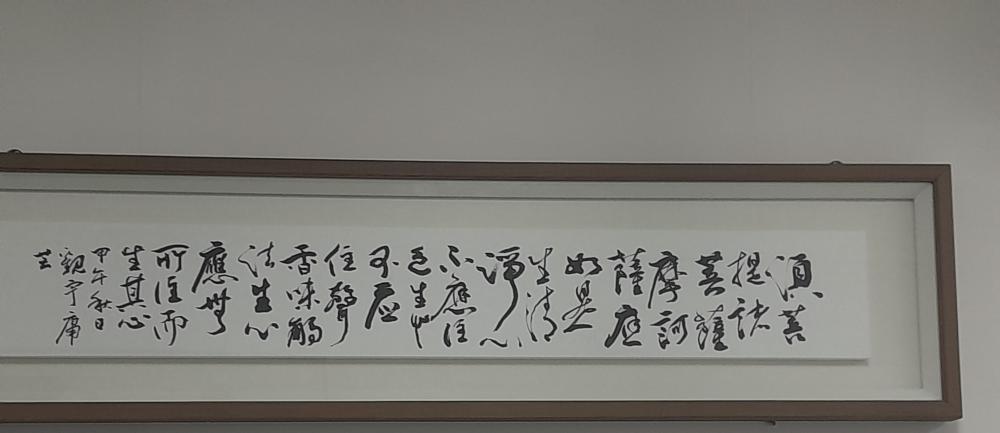 須菩
提諸
菩薩
摩訶
薩應
如是
生清
淨心
不應住
色生心
不應
住聲
香味觸
法生心
應無
所住而
生其心
甲午秋日
觀宇庸